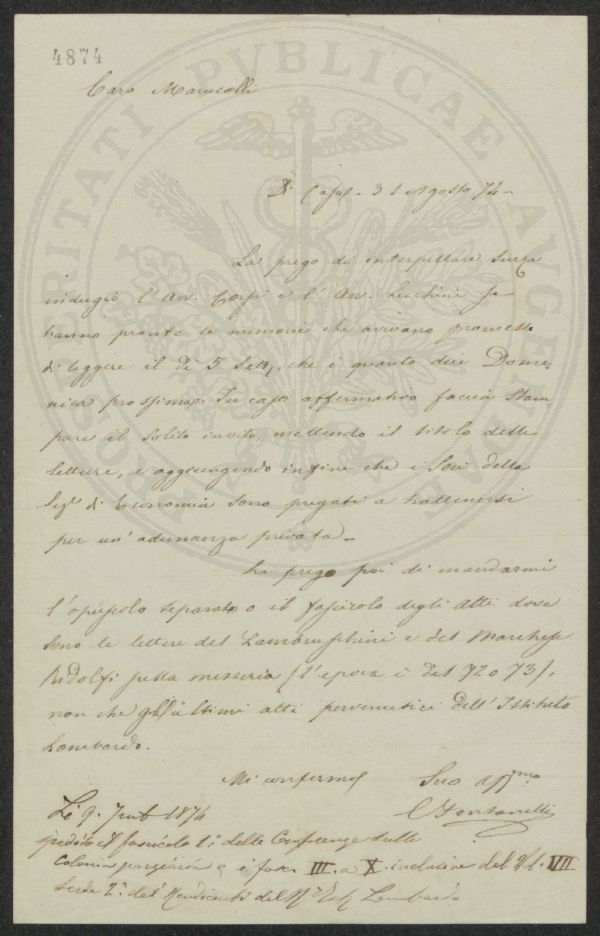 4874
Caro Marucelli
Di Casa - 31 Agosto 74 -
La prego di interpellare senza
indugio l'Av. Corsi e l'Av. Luchini se
hanno pronte le memorie che avevano promesso
di leggire il dì 5 Sett., che è quanto dire Dome-
nica prossima. In caso affermativo faccia stam-
pare il solito invito, mettendo il titolo delle
letture, e aggiungendo infine che i Soci della
Sez.e di Economia sono pregati a trattenersi
per un'adunanza privata -
La prego poi di mandarmi
l'opuscolo separato o il fascicolo degli Atti dove
sono le lettere del Lambruschini e del Marchese
Ridolfi sulla mezzeria (l'epoca è del 72 o 73),
non che gli ultimi atti pervenutici dell'Istituto
Lombardo.
Mi confermo Suo aff.mo
C Fontanelli
Li 9. 1874
spedito il fascicolo 1° delle Conferenze sulla
Colonia parziaria e i fasc. III. a X. inclusive del Vol. VII
Serie 2.a dei Rendiconti del R.o Ist. Lombardo
PROSPERITATI PVBLICAE AVGENDAE